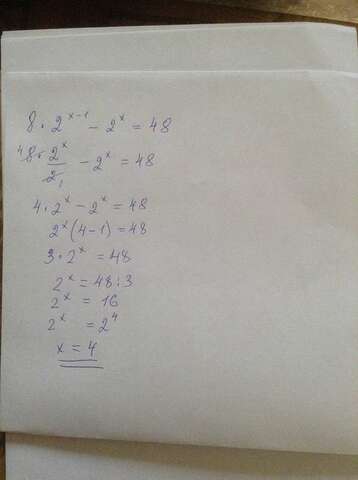 8 · 2^(x-1) - 2^x = 48
⁴8 · 2^x/2₁ - 2^x = 48
4 · 2^x - 2^x = 48
2^x (4-1) = 48
3 · 2^x = 48
2^x = 48 : 3
2^x = 16
2^x = 2^4
x = 4